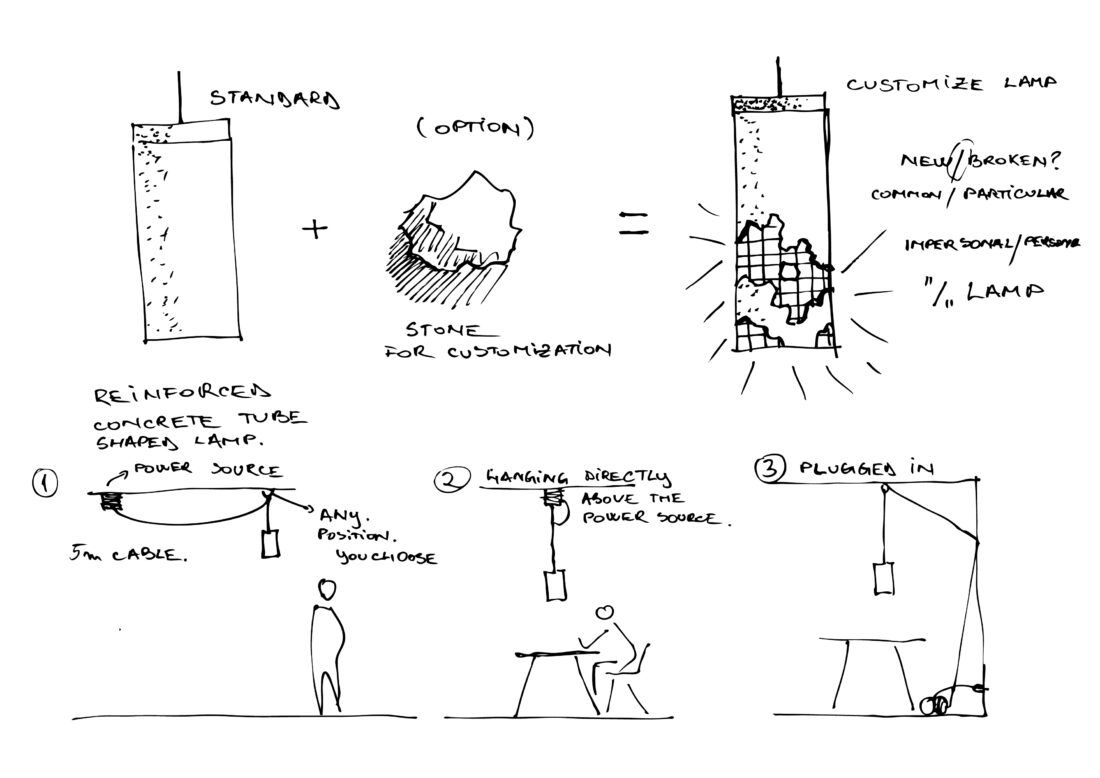 STANDARD
(OPTION)
+
=
STONE
FOR CUSTOMIZATION
CUSTOMIZE LAMP
NEW/BROKEN?
COMMON/PARTICULAR
IMPERSONAL/
"/„ LAMP
REINFORCED
CONCRETE TUBE
SHAPED LAMP.
1
POWER SOURCE
5m CABLE.
ANY.
POSITION.
YOU CHOOSE
2 HANGING DIRECTLY
ABOVE THE
POWER SOURCE.
3 PLUGGED IN